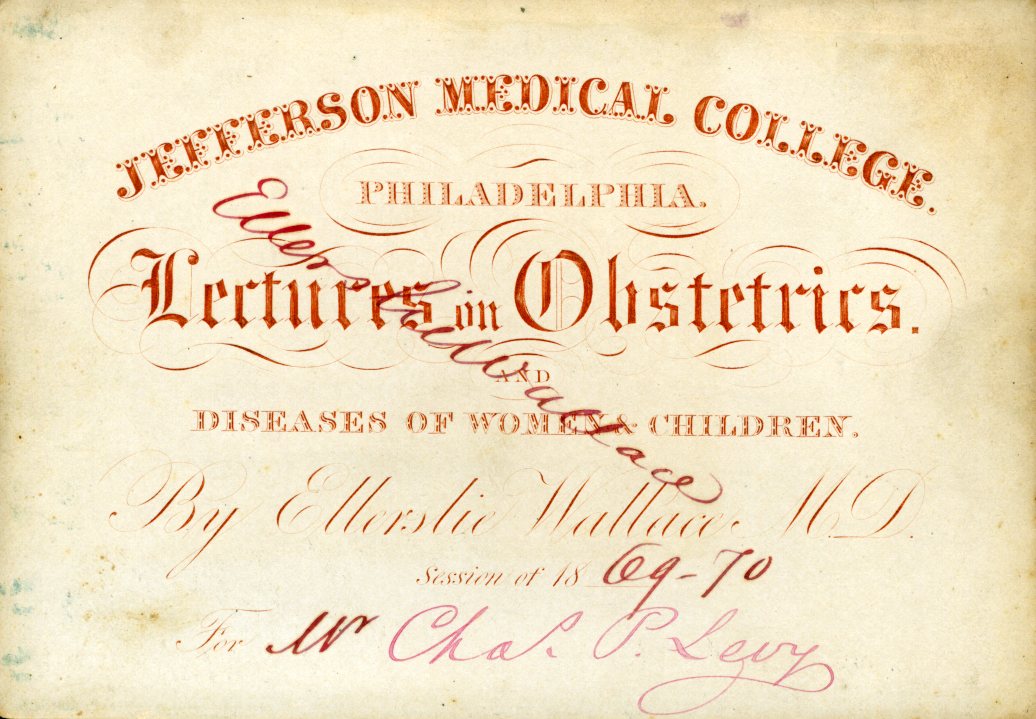 JEFFERSON MEDICAL COLLEGE.
PHILADELPHIA.
Lectures on Obstetrics.
AND
DISEASES OF WOMEN & CHILDREN.
By Ellerslie Wallace, M.D.
Session of 1869-70
For Mr Chas. P. Levy
Ellerslie Wallace